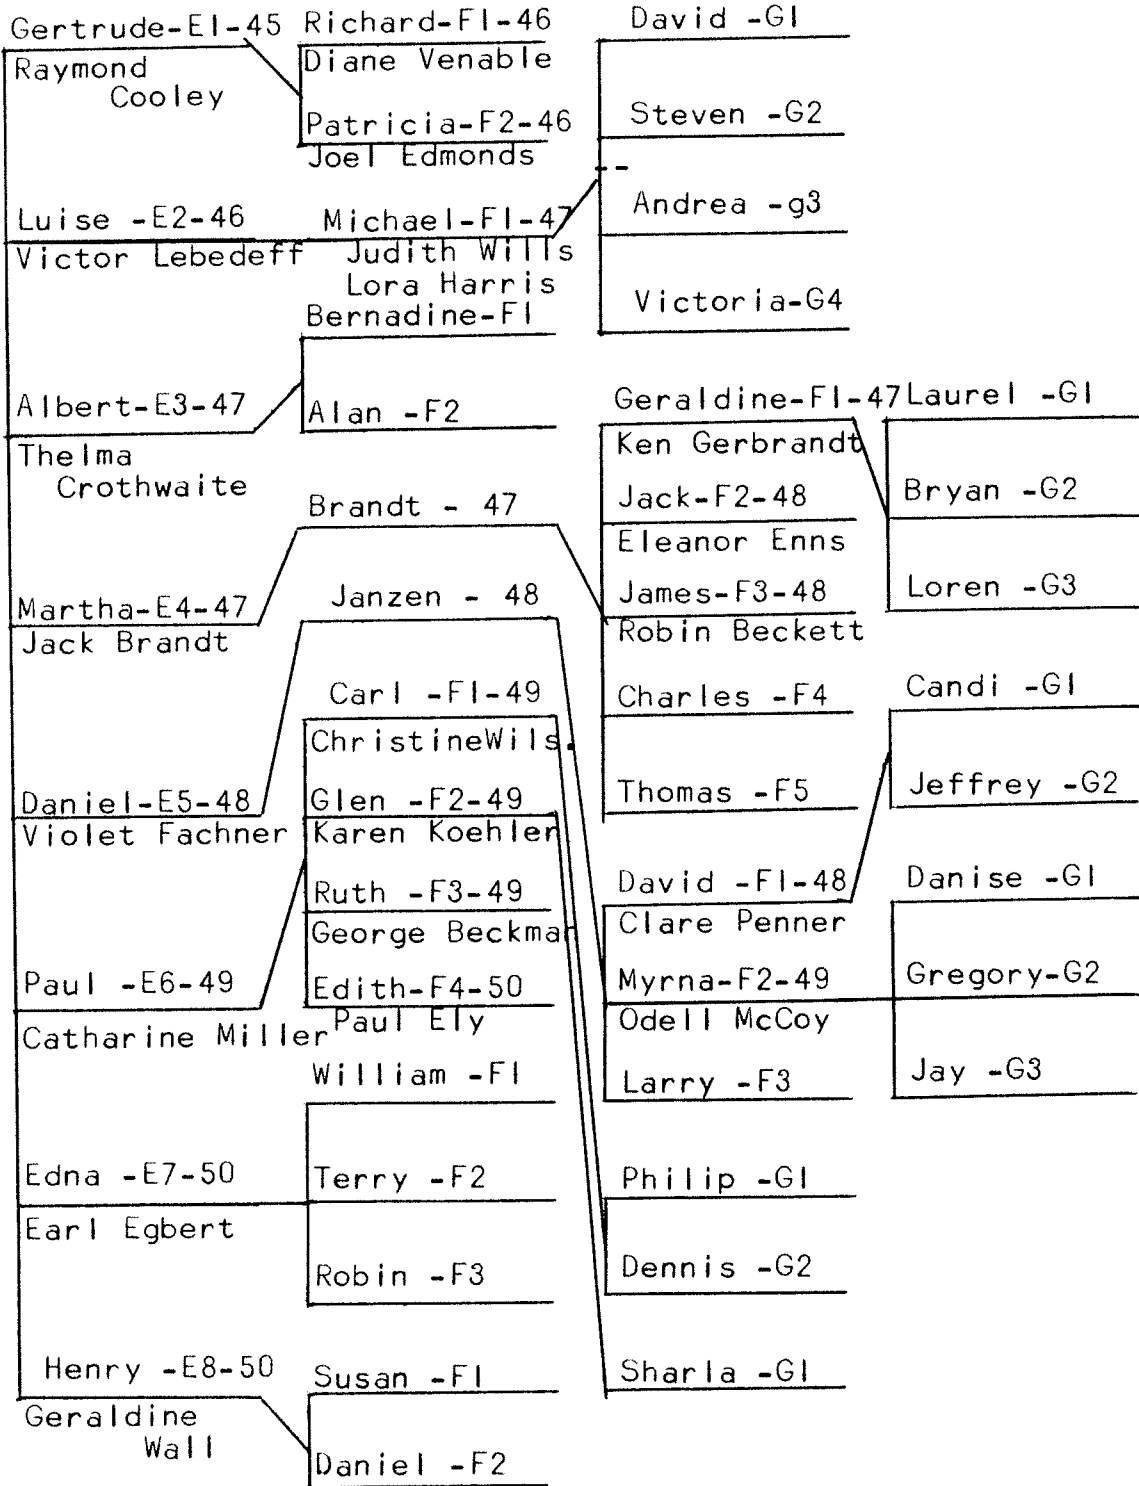 Gertrude-E1-45
Raymond
Cooley
Luise -E2-46
Victor Lebedeff
Albert-E3-47
Thelma
Crothwaite
Martha-E4-47
Jack Brandt
Daniel-E5-48
Violet Fachner
Paul -E6-49
Catharine Miller
Edna -E7-50
Earl Egbert
Henry -E8-50
Geraldine
Wall
Richard-F1-46
Diane Venable
Patricia-F2-46
Joel Edmonds
Michael-F1-47
Judith Wills
Lora Harris
Bernadine-F1
Alan -F2
Brandt - 47
Janzen - 48
Carl -F1-49
ChristineWils.
Glen -F2-49
Karen Koehler
Ruth -F3-49
George Beckman
Edith-F4-50
Paul Ely
William -F1
Terry -F2
Robin -F3
Susan -F1
Daniel -F2
David -G1
Steven -G2
Andrea -g3
Victoria-G4
Geraldine-F1-47
Ken Gerbrandt
Jack-F2-48
Eleanor Enns
James-F3-48
Robin Beckett
Charles -F4
Thomas -F5
David -F1-48
Clare Penner
Myrna-F2-49
Odell McCoy
Larry -F3
Philip -G1
Dennis -G2
Sharla -G1
Laurel -G1
Bryan -G2
Loren -G3
Candi -G1
Jeffrey -G2
Danise -G1
Gregory-G2
Jay -G3